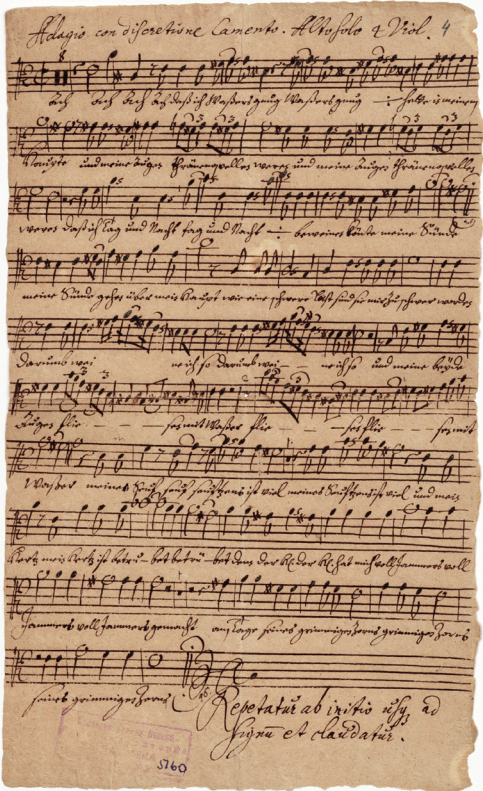 Adagio con discretione Lamento. Alto solo è Viol. 4
8
Ach Ach Ach Ach daß ich Waßers gnug Waßers gnug hette in meinem
Haupte und meine Augen Thränenquellen weren und meine Augen Thränenquellen
weren daß ich Tag und Nacht Tag und Nacht beweinen könte meine Sünde
meine Sünde gehen über mein Haupt wie eine schwere Last sind sie mir zu schwer worden
Darumb wei - ne ich so Darumb wei - ne ich so und meine beyde
Augen flie - - - ßen mit Waßer flie - - - ßen flie - - ßen mit
Waßer meines Seuftzens ist viel meines Seuftzens ist viel und mein
Hertz mein Hertz ist betrü - bet betrü - bet denn der der hat mich voll Jammers voll
Jammers voll Jammers gemacht am Tage seines grimmigen Zorns grimmigen Zorns
seines grimmigen Zorns
Repetatur ab initio usq ad
signu et claudatur.
5760